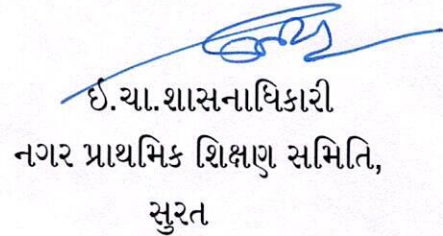 ઈ.ચા.શાસનાધિકારી
નગર પ્રાથમિક શિક્ષણ સમિતિ,
સુરત